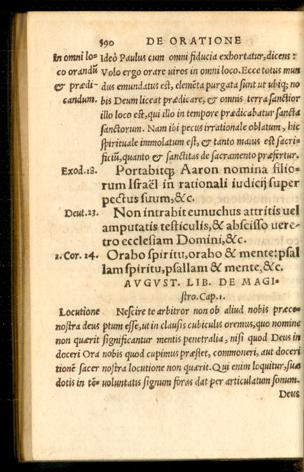 590 DE ORATIONE
In omni lo- Ideò Paulus cum omni fiducia exhortatur, dicens:
co orandū Volo ergo orare uiros in omni loco. Ecce totus mun
& prædi- dus emundatus est, elemēta purgata sunt ut ubiq; no
candum. bis Deum liceat prædicare, & omnis terra sanctior
illo loco est, qui illo in tempore prædicabatur sancta
sanctorum. Nam ibi pecus irrationale oblatum, hic
spirituale immolatum est, & tanto maius est sacri-
ficiū, quanto & sanctitas de sacramento præfertur.
Exod.18. Portabitq; Aaron nomina filio-
rum Israël in rationali iudicij super
pectus suum, &c.
Deut.23. Non intrabit eunuchus attritis uel
amputatis testiculis, & abscisso uere-
tro ecclesiam Domini, &c.
1. Cor. 14. Orabo spiritu, orabo & mente: psal
lam spiritu, psallam & mente, &c.
AVGVST. LIB. DE MAGI
stro. Cap. 1.
Locutione Nescire te arbitror non ob aliud nobis præce-
nostra deus ptum esse, ut in clausis cubiculis oremus, quo nomine
non quærit significantur mentis penetralia, nisi quod Deus in
doceri Ora nobis quod cupimus præstet, commoneri, aut doceri
tionē sacer nostra locutione non quærit. Qui enim loquitur, suæ
dotis in tē= uoluntatis signum foras dat per articulatum sonum.
Deus